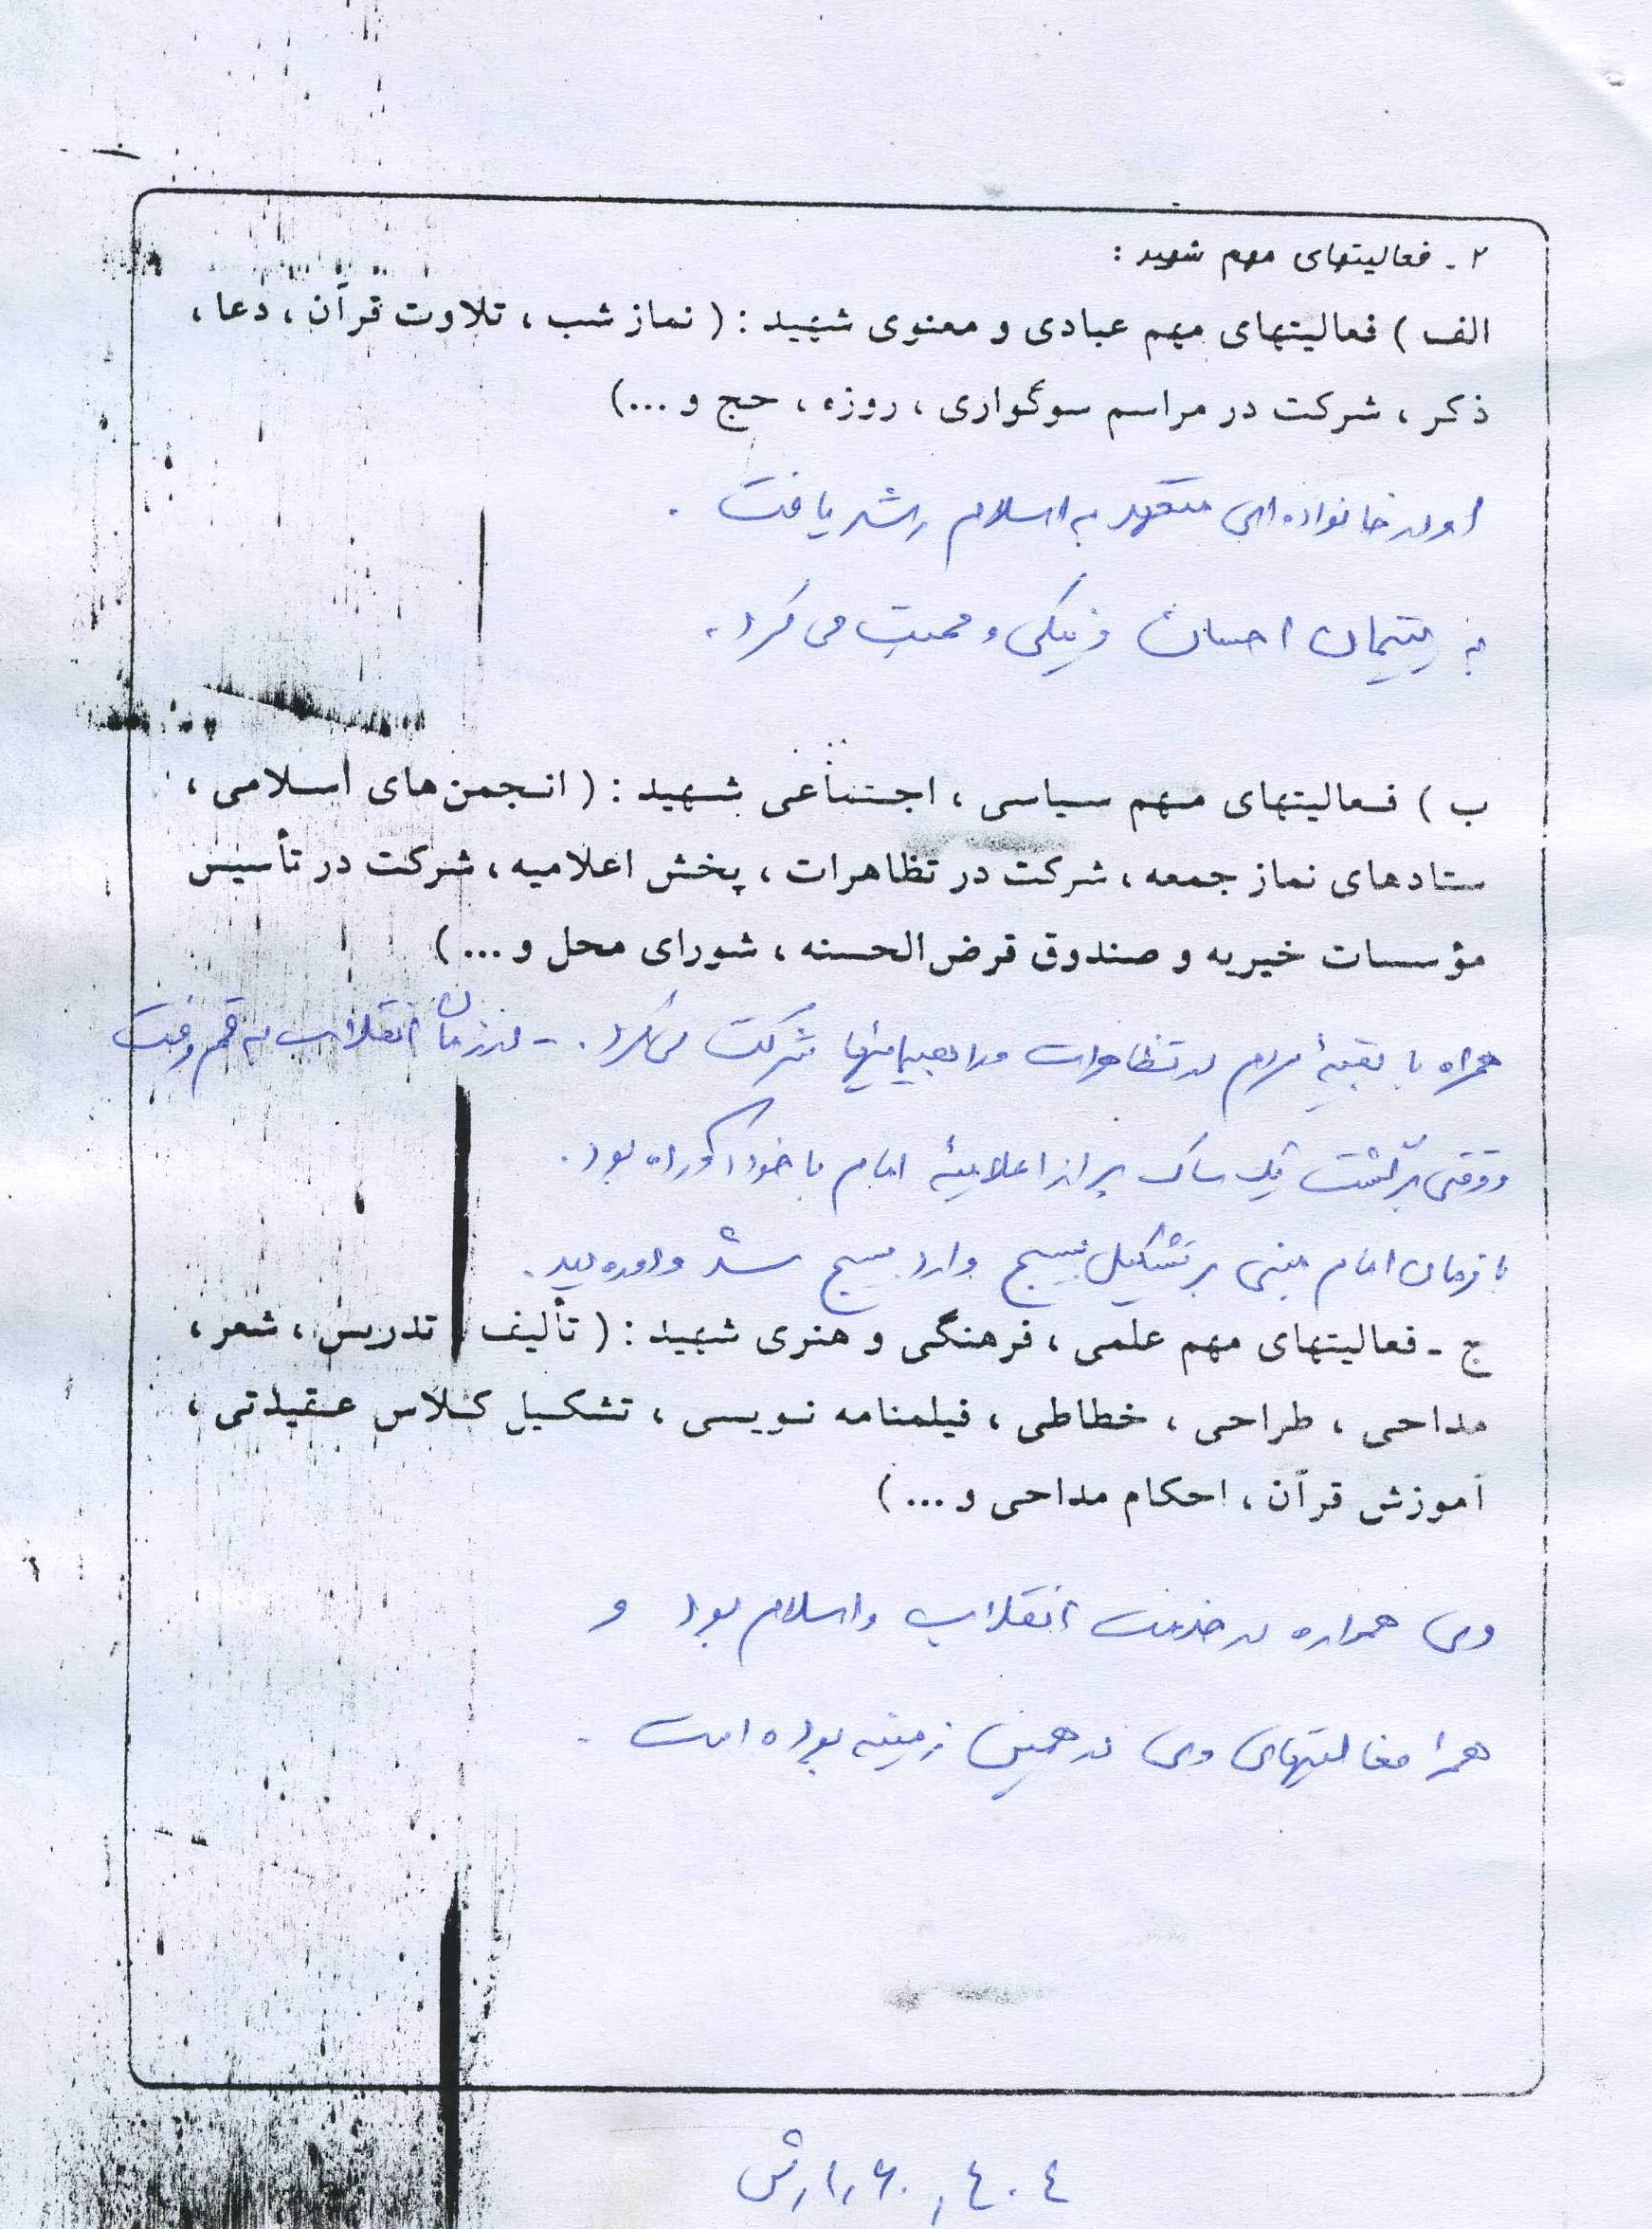 ۲ ـ فعالیتهای مهم شهید :
الف ) فعالیتهای مهم عبادی و معنوی شهید : ( نماز شب ، تلاوت قرآن ، دعا ،
ذکر ، شرکت در مراسم سوگواری ، روزه ، حج و ...)
او در خانواده ای متعهد به اسلام رشد یافت .
به یتیمان احسان و نیکی و محبت می کرد .
ب ) فعالیتهای مهم سیاسی ، اجتماعی شهید : ( انجمن های اسلامی ،
ستادهای نماز جمعه ، شرکت در تظاهرات ، پخش اعلامیه ، شرکت در تأسیس
مؤسسات خیریه و صندوق قرض الحسنه ، شورای محل و ... )
همراه با بقیهٔ مردم در تظاهرات و راهپیمائیها شرکت می کرد . - در زمان انقلاب به قم رفت
و وقتی برگشت یک ساک پر از اعلامیهٔ امام با خود آورده بود .
با فرمان امام مبنی بر تشکیل بسیج وارد بسیج شد و دوره دید .
ج ـ فعالیتهای مهم علمی ، فرهنگی و هنری شهید : ( تألیف ، تدریس ، شعر ،
مداحی ، طراحی ، خطاطی ، فیلمنامه نویسی ، تشکیل کلاس عقیدتی ،
آموزش قرآن ، احکام مداحی و ... )
وی همواره در خدمت انقلاب و اسلام بود و
همهٔ فعالیتهای وی در همین زمینه بوده است .